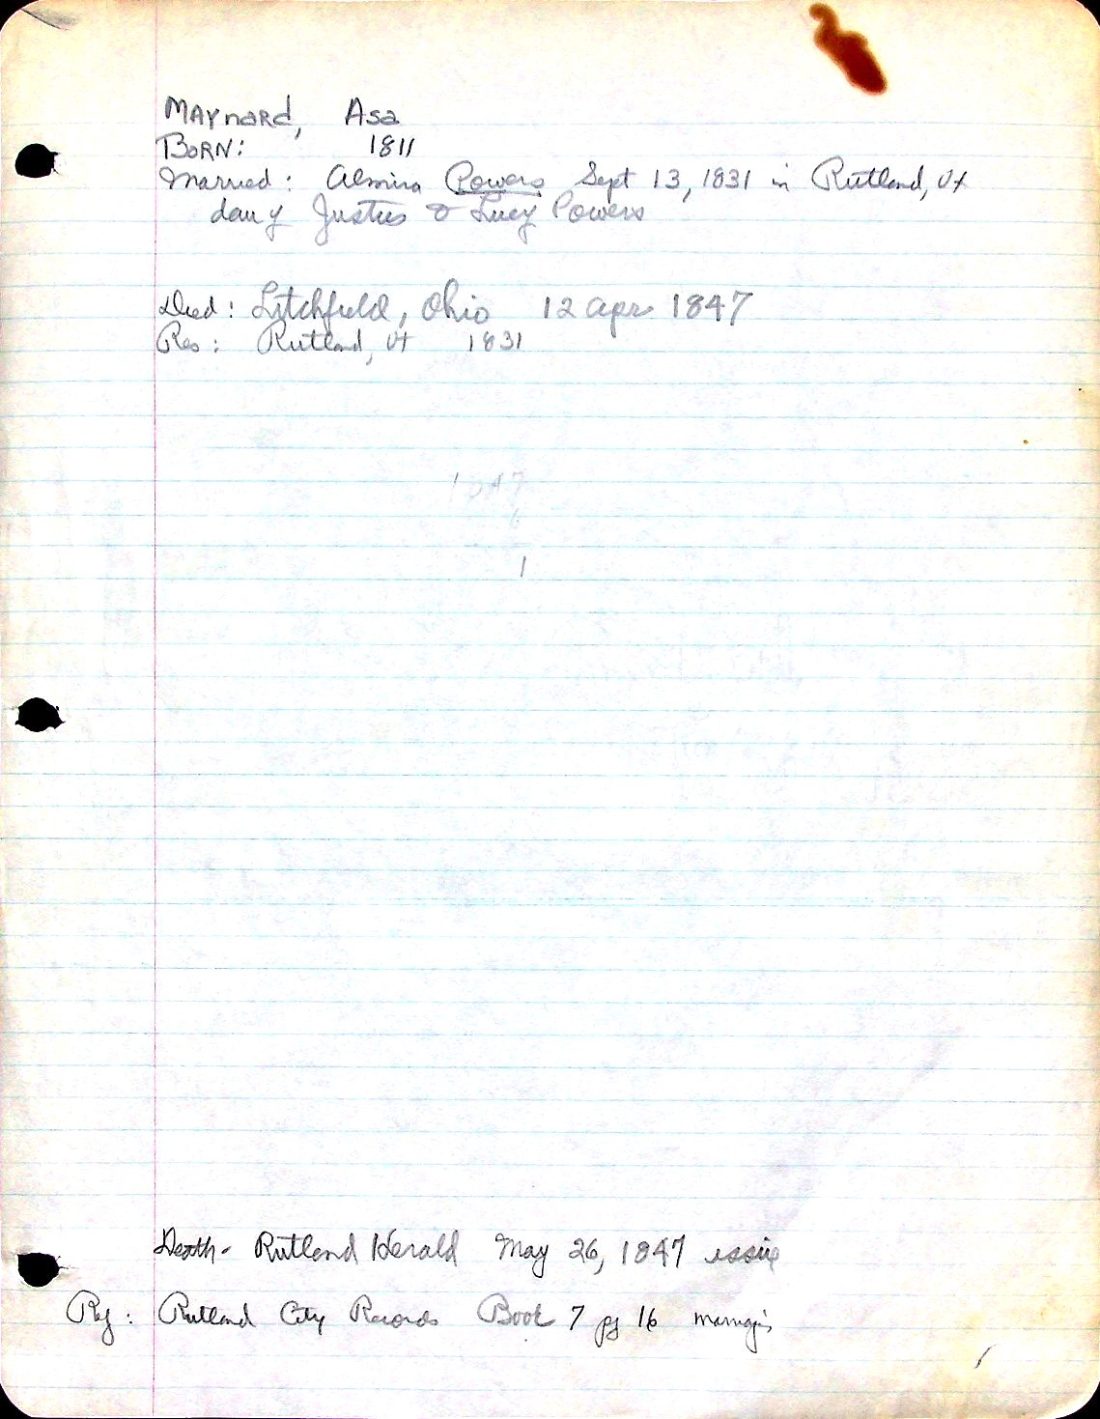 Maynard, Asa
Born: 1811
Married: Almira Powers Sept 13, 1831 in Rutland, Vt
dau of Justus & Lucy Powers
Died: Litchfield, Ohio 12 Apr 1847
Res: Rutland, Vt 1831
1847
1
Death- Rutland Herald May 26, 1847 issue
Ref: Rutland City Records Book 7 pg 16 marriages